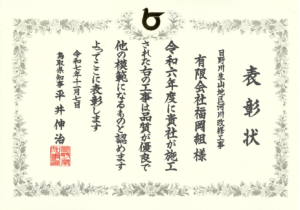 表彰状
日野川生山地区河川改修工事
有限会社福岡組 様
令和六年度に貴社が施工
された右の工事は品質が優良で
他の模範になるものと認めます
よってここに表彰します
令和七年十一月七日
鳥取県知事 平井伸治